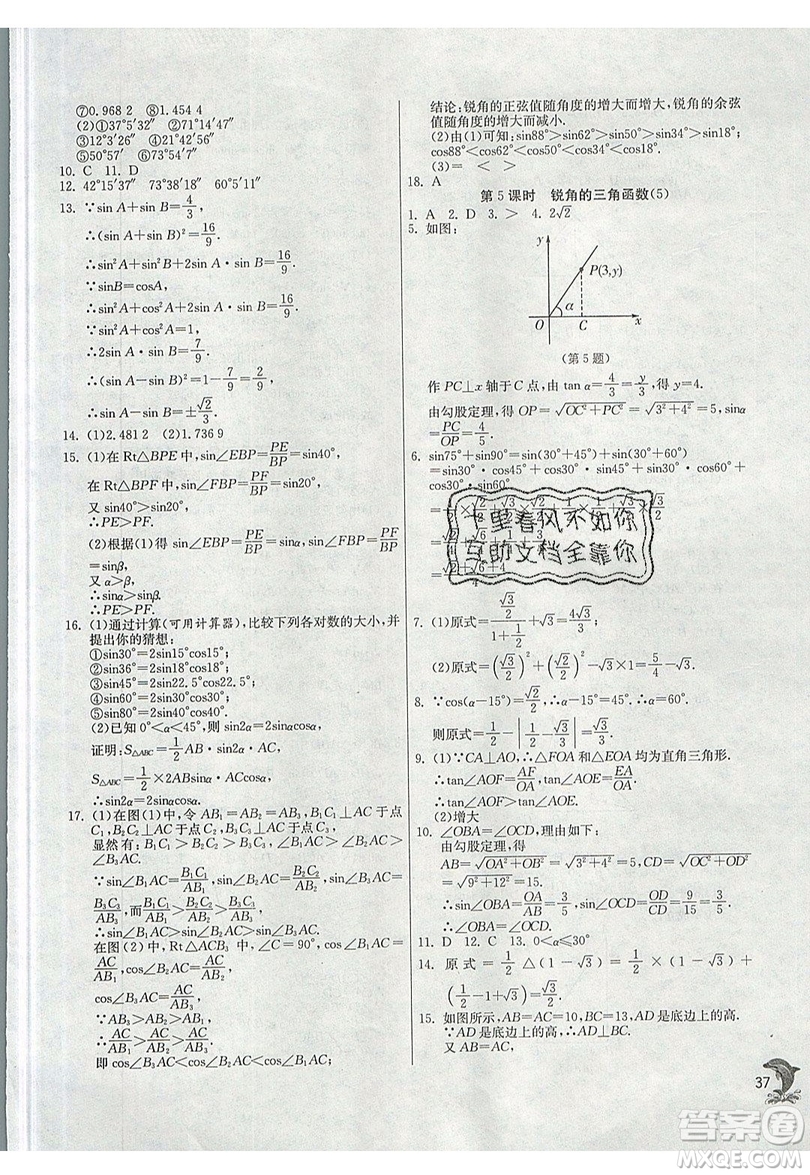 ⑦0.968 2 ⑧1.454 4
(2)①37°5′32″ ②71°14′47″
③12°3′26″ ④21°42′56″
⑤50°57′ ⑥73°54′54″
10. C 11. D
12. 42°15′37″ 73°38′18″ 20°
13. ∵sin A+sin B=4/3,
∴(sin A+sin B)²=16/9.
∴sin²A+sin²B+2sin A·sin B=16/9.
∵sinB=cosA,
∴sin²A+cos²A+2sin A·sin B=16/9.
∵sin²A+cos²A=1,
∴2sin A·sin B=7/9.
∴(sin A−sin B)²=1−7/9=2/9.
∴sin A−sin B=±√2/3.
14. (1)2.481 2 (2)1.736 9
15. (1)在 Rt△BPE 中,sin∠EBP=PE/BP=sin40°,
在 Rt△BPF 中,sin∠FBP=PF/BP=sin20°,
又 sin40°>sin20°,
∴PE>PF.
(2)根据(1)得 sin∠EBP=PE/BP=sinα,sin∠FBP=PF/BP
=sinβ,
又 α>β,
∴sinα>sinβ.
∴PE>PF.
16. (1)通过计算(可用计算器),比较下列各对数的大小,并
提出你的猜想:
①sin30°=2sin15°cos15°;
②sin36°=2sin18°cos18°;
③sin45°=2sin22.5°cos22.5°;
④sin60°=2sin30°cos30°;
⑤sin80°=2sin40°cos40°.
(2)已知 0°<α<45°,则 sin2α=2sinαcosα.
证明:∵S△ABC=1/2AB·sin2α·AC,
S△ABC=1/2×2ABsinα·ACcosα,
∴sin2α=2sinαcosα.
17. (1)在图(1)中,令 AB₁=AB₂=AB₃,B₁C₁⊥AC 于点
C₁,B₂C₂⊥AC 于点 C₂,B₃C₃⊥AC 于点 C₃,
显然有:B₁C₁>B₂C₂>B₃C₃,∠B₁AC>∠B₂AC>
∠B₃AC.
∵sin∠B₁AC=B₁C₁/AB₁,sin∠B₂AC=B₂C₂/AB₂,sin∠B₃AC=
B₃C₃/AB₃,而B₁C₁/AB₁>B₂C₂/AB₂>B₃C₃/AB₃,
∴sin∠B₁AC>sin∠B₂AC>sin∠B₃AC.
在图(2)中,Rt△ACB₃ 中,∠C=90°,cos∠B₁AC=
AC/AB₁,cos∠B₂AC=AC/AB₂,
cos∠B₃AC=AC/AB₃.
∵AB₃>AB₂>AB₁,
∴AC/AB₁>AC/AB₂>AC/AB₃.
即 cos∠B₃AC<cos∠B₂AC<cos∠B₁AC.
结论:锐角的正弦值随角度的增大而增大,锐角的余弦
值随角度的增大而减小.
(2)由(1)可知:sin88°>sin62°>sin50°>sin34°>sin18°;
cos88°<cos62°<cos50°<cos34°<cos18°.
(3)= < >
18. A
第 5 课时 锐角的三角函数(5)
1. A 2. D 3. > 4. 2√2
5. 如图:
y
P(3,y)
α
O C x
(第 5 题)
作 PC⊥x 轴于 C 点,由 tan α=4/3=y/3,可得 y=4.
由勾股定理,得 OP=√(OC²+PC²)=√(3²+4²)=5,sinα
=PC/OP=4/5.
6. sin75°+sin90°=sin(30°+45°)+sin(30°+60°)
=sin30°·cos45°+cos30°·sin45°+sin30°·
cos60°+cos30°·sin60°
十里春风不如你
互助文档全靠你
7. (1)原式=(√3/2)/(1+1/2)+√3=4√3/3;
(2)原式=(√3/2)²+(√2/2)²−√3×1=5/4−√3.
8. ∵cos(α−15°)=√2/2,∴α−15°=45°,∴α=60°.
则原式=1/2−|1/2−√3/3|=1−√3/3.
9. (1)∵CA⊥AO,∴△FOA 和△EOA 均为直角三角形.
∴tan∠AOF=AF/OA,tan∠AOE=EA/OA.
∴tan∠AOF>tan∠AOE.
(2)增大
10. ∠OBA=∠OCD,理由如下:
由勾股定理,得
AB=√(OA²+OB²)=√(3²+4²)=5,CD=√(OC²+OD²)
=√(9²+12²)=15,
∴sin∠OBA=OA/AB=3/5,sin∠OCD=OD/CD=9/15=3/5.
∴sin∠OBA=sin∠OCD,∴∠OBA=∠OCD.
11. D 12. C 13. 0<α≤30°
14. 原式=1/2△(1−√3)=1/2×(1−√3)+
(1/2−1+√3)=√3/2.
15. 如图所示,AB=AC=10,BC=13,AD 是底边上的高.
∵AD 是底边上的高,∴AD⊥BC.
又 AB=AC,
37
答案卷
MXQE.COM